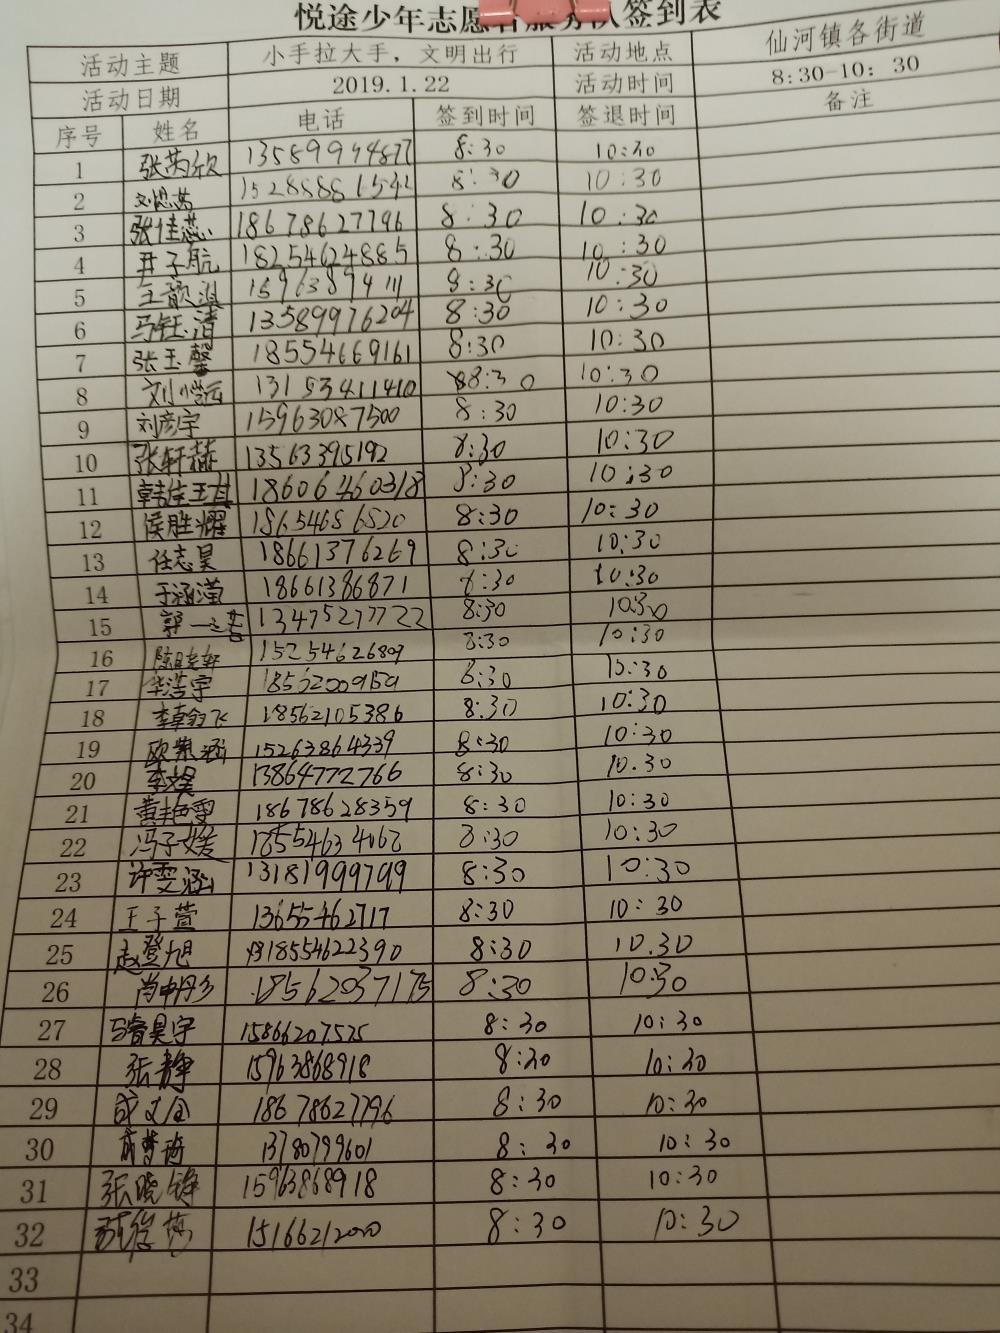 悦途少年志愿者服务队签到表
活动主题 小手拉大手，文明出行 活动地点 仙河镇各街道
活动日期 2019.1.22 活动时间 8:30-10:30
序号 姓名 电话 签到时间 签退时间 备注
1 8:30 10:30
2 8:30 10:30
3 张佳蕊 18678627796 8:30 10:30
4 18254624885 8:30 10:30
5 8:30 10:30
6 马钰清 13589976204 8:30 10:30
7 张玉馨 18554669161 8:30 10:30
8 13153411410 8:30 10:30
9 刘彦宇 15963087500 8:30 10:30
10 张轩赫 13563395192 8:30 10:30
11 18606460318 8:30 10:30
12 侯胜耀 18654656520 8:30 10:30
13 任志昊 18661376269 8:30 10:30
14 于涵滢 18661386871 8:30 10:30
15 13475277722 8:30 10:30
16 15254626809 8:30 10:30
17 华浩宇 18562009159 8:30 10:30
18 18562105386 8:30 10:30
19 15263864339 8:30 10:30
20 13864772766 8:30 10.30
21 18678628359 8:30 10:30
22 冯子媛 18554634062 8:30 10:30
23 许雯涵 13181999799 8:30 10:30
24 王子萱 13655462717 8:30 10:30
25 赵登旭 18554622390 8:30 10.30
26 18562037175 8:30 10:30
27 马睿昊宇 15866207525 8:30 10:30
28 张静 15963868918 8:30 10:30
29 18678627796 8:30 10:30
30 13780799601 8:30 10:30
31 张晓锋 15963868918 8:30 10:30
32 15166212020 8:30 10:30
33
34